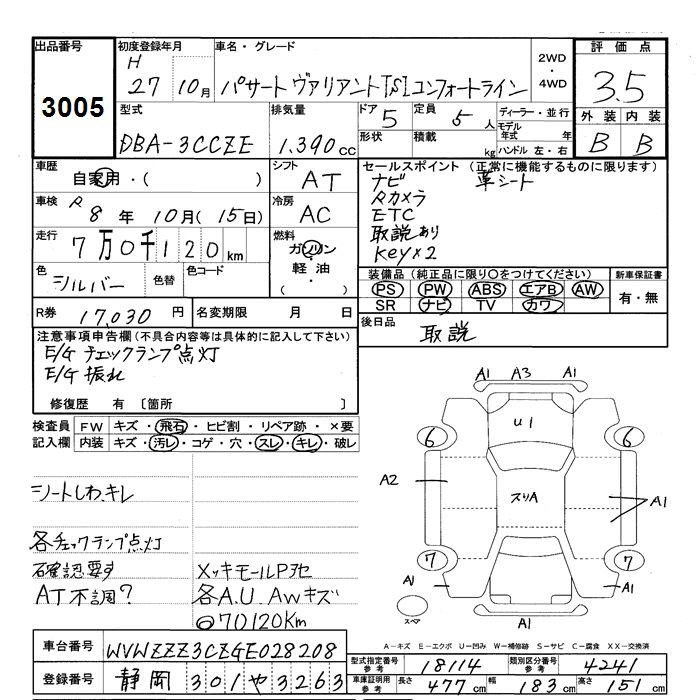 出品番号 初度登録年月 車名・グレード 2WD・4WD 評価点
3005 H 27 10月 パサート ヴァリアント TSI コンフォートライン 3.5
型式 排気量 ドア 定員 ディーラー・並行 外装 内装
DBA-3CCZE 1.390cc 5 5人 モデル年式 年 B B
形状 積載 kg ハンドル 左・右
車歴 シフト セールスポイント (正常に機能するものに限ります)
自家用・( ) AT ナビ 革シート
車検 冷房 Rカメラ
R 8年 10月(15日) AC ETC
走行 燃料 取説あり
7万0千120km ガソリン 軽油 ( ・ ) Key×2
色 色替 色コード 装備品 (純正品に限り○をつけてください) 新車保証書
シルバー PS PW ABS エアB AW 有・無
SR ナビ TV カワ
R券 17,030円 名変期限 月 日 後日品
取説
注意事項申告欄 (不具合内容等は具体的に記入して下さい)
E/G チェックランプ点灯
E/G 振れ
修復歴 有 〔箇所 〕
検査員 FW キズ・飛石・ヒビ割・リペア跡・×要
記入欄 内装 キズ・汚レ・コゲ・穴・スレ・キレ・破レ
シートしわ、キレ
各チェックランプ点灯
確認要す メッキモール
AT不調? 各A.U. AWキズ
70120Km
A1 A3 A1
U1
6 6
A2 スリA A1
7 7
A1 A1
スペア A1
A-キズ E-エクボ U-凹み W-補修跡 S-サビ C-腐食 XX-交換済
車台番号 WVWZZZ3CZGE028208
登録番号 静岡 301 や 3263
型式指定番号 参考 18114 類別区分番号 参考 4241
車庫証明用 参考 長さ 477cm 幅 183cm 高さ 151cm